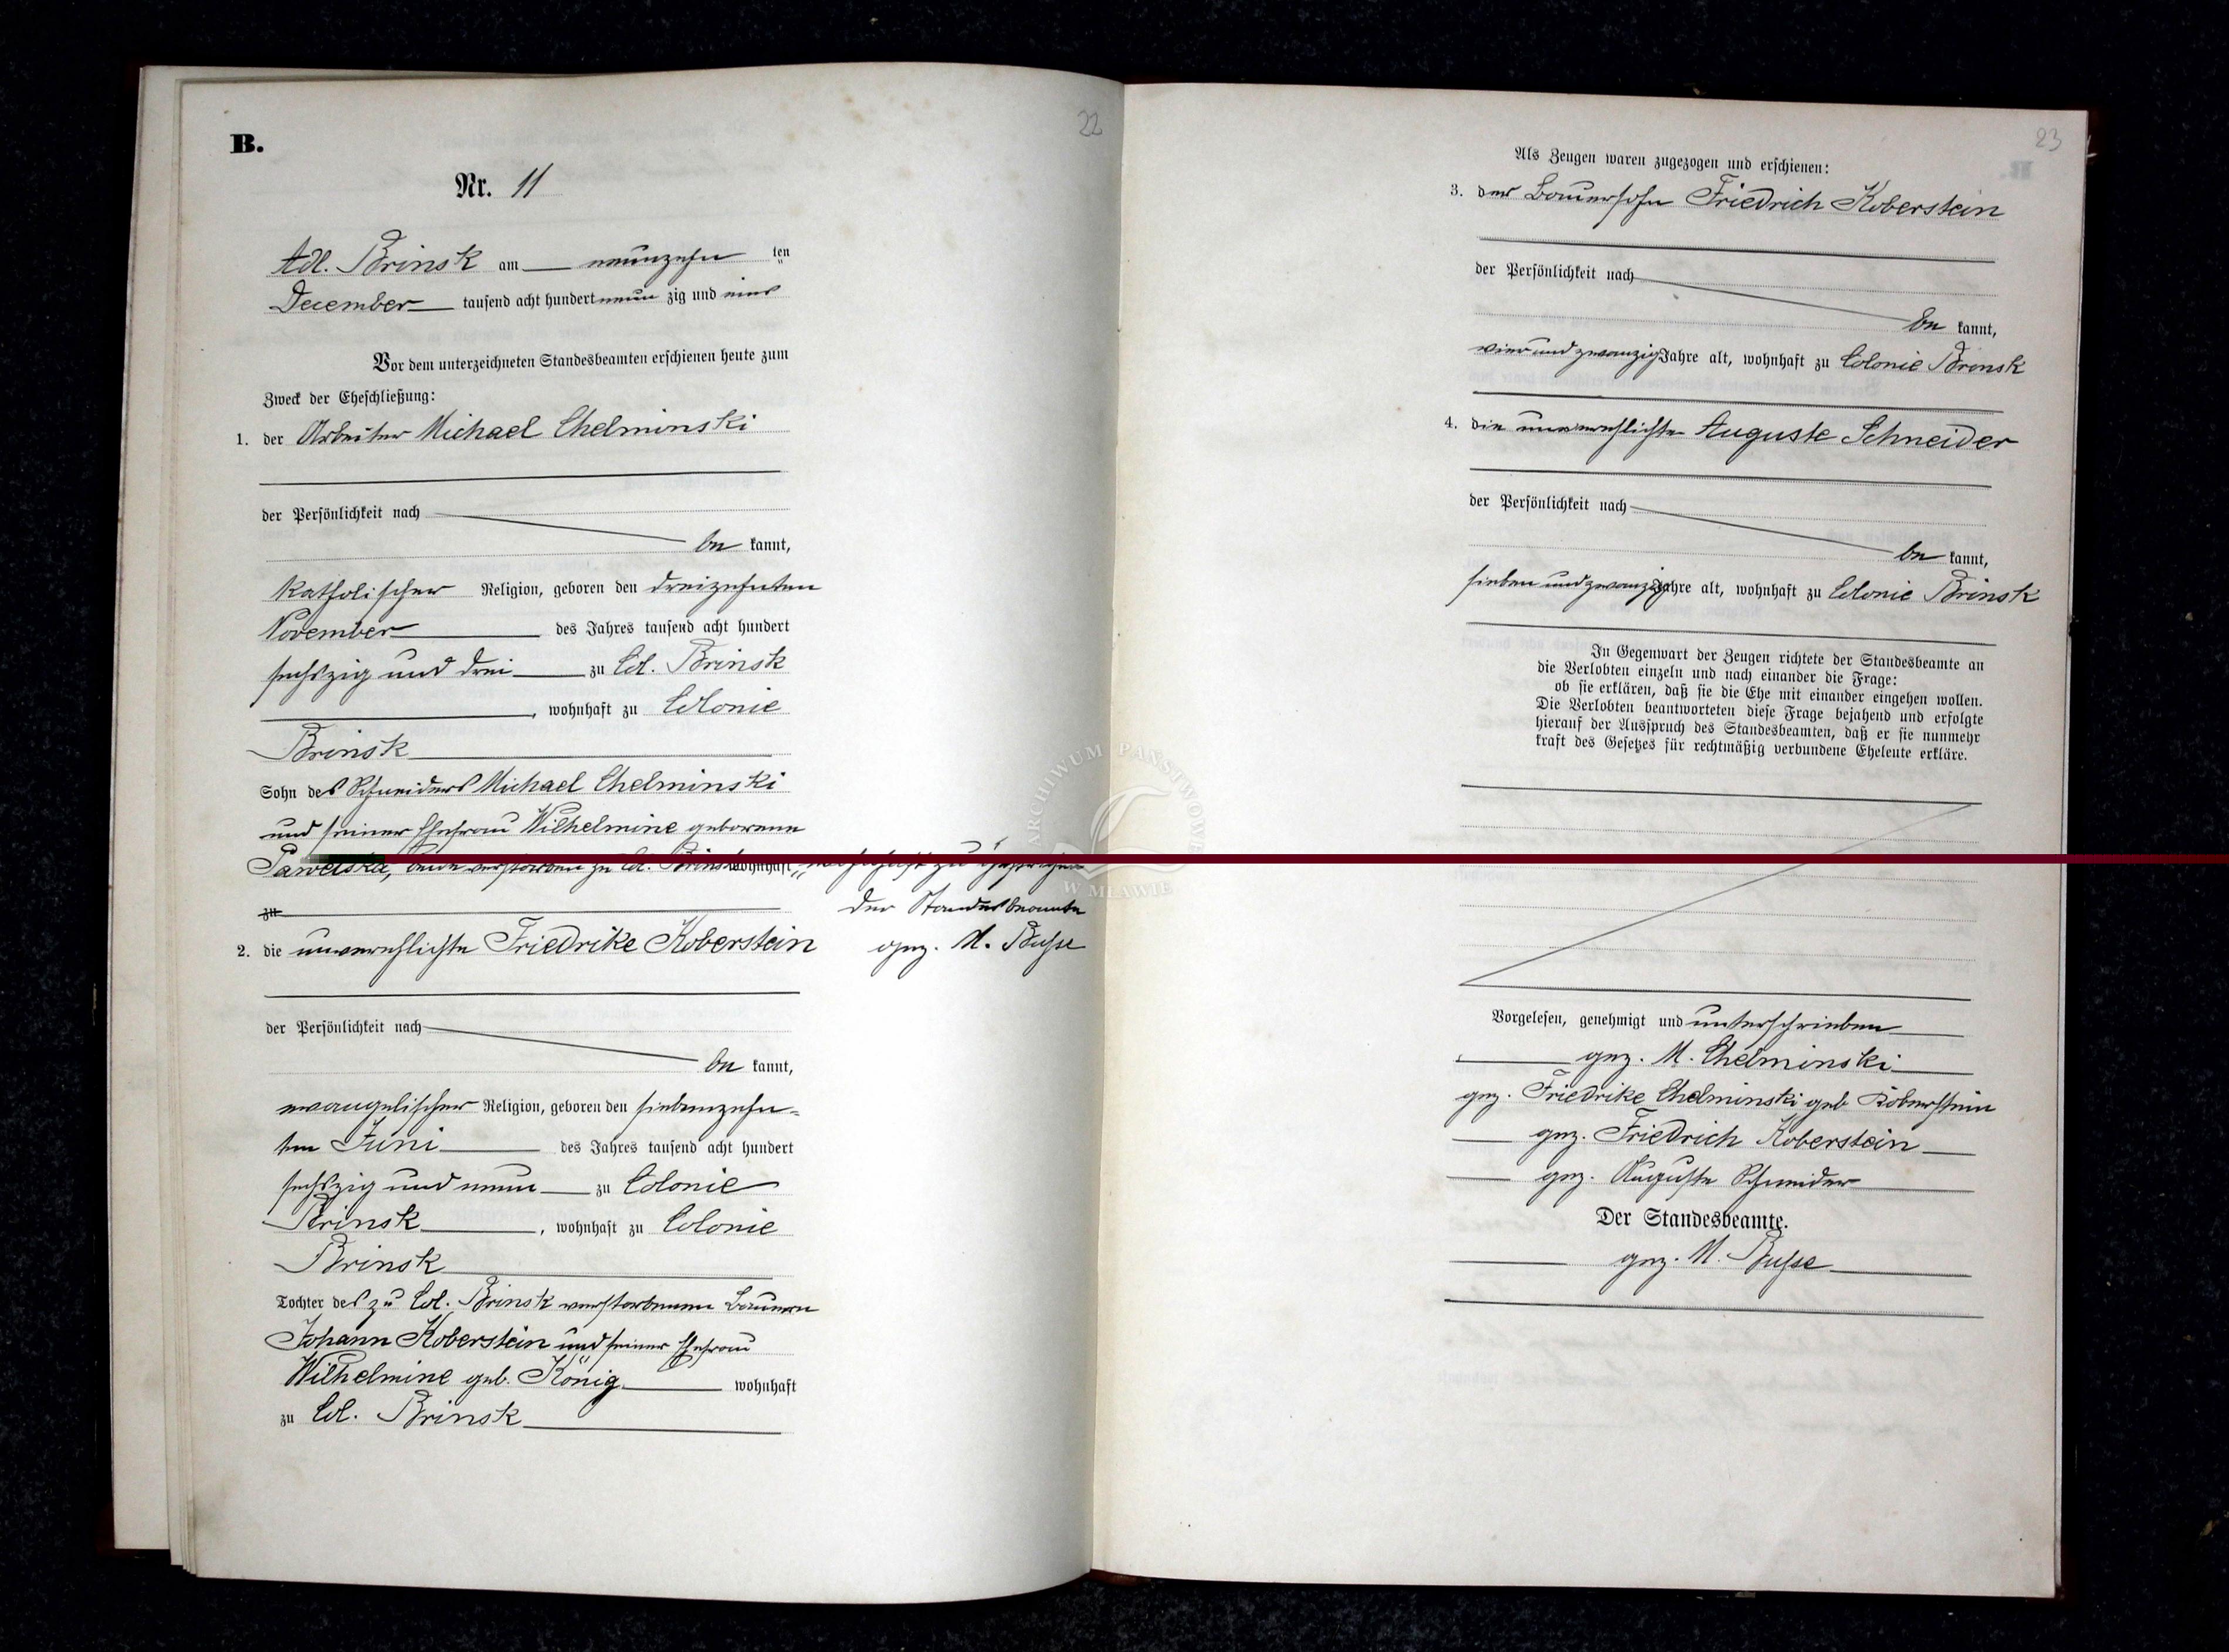 22
B.
Nr. 11
Adl. Brinsk am neunzehn ten
December tausend acht hundert neun zig und eins
Vor dem unterzeichneten Standesbeamten erschienen heute zum
Zweck der Eheschließung:
1. der Arbeiter Michael Chelminski
der Persönlichkeit nach
be kannt,
katholischer Religion, geboren den dreizehnten
November des Jahres tausend acht hundert
sechszig und drei zu Col. Brinsk
, wohnhaft zu Colonie
Brinsk
Sohn des Schneiders Michael Chelminski
und seiner Ehefrau Wilhelmine geborene
Pawelska, verstorben zu Col. Brinsk wohnhaft
zu
der Standesbeamte
gez. M. Busse
2. die unverehlichte Friedrike Koberstein
der Persönlichkeit nach
be kannt,
evangelischer Religion, geboren den siebenzehn-
ten Juni des Jahres tausend acht hundert
sechszig und neun zu Colonie
Brinsk, wohnhaft zu Colonie
Brinsk
Tochter des zu Col. Brinsk verstorbenen Bauern
Johann Koberstein und seiner Ehefrau
Wilhelmine geb. König wohnhaft
zu Col. Brinsk
23
Als Zeugen waren zugezogen und erschienen:
3. der Bauersohn Friedrich Koberstein
der Persönlichkeit nach
be kannt,
vier und zwanzig Jahre alt, wohnhaft zu Colonie Brinsk
4. die unverehlichte Auguste Schneider
der Persönlichkeit nach
be kannt,
sieben und zwanzig Jahre alt, wohnhaft zu Colonie Brinsk
In Gegenwart der Zeugen richtete der Standesbeamte an
die Verlobten einzeln und nach einander die Frage:
ob sie erklären, daß sie die Ehe mit einander eingehen wollen.
Die Verlobten beantworteten diese Frage bejahend und erfolgte
hierauf der Ausspruch des Standesbeamten, daß er sie nunmehr
kraft des Gesetzes für rechtmäßig verbundene Eheleute erkläre.
Vorgelesen, genehmigt und unterschrieben
gez. M. Chelminski
gez. Friedrike Chelminski geb Koberstein
gez. Friedrich Koberstein
gez. Auguste Schneider
Der Standesbeamte.
gez. M. Busse
ARCHIWUM PAŃSTWOWE
W MŁAWIE